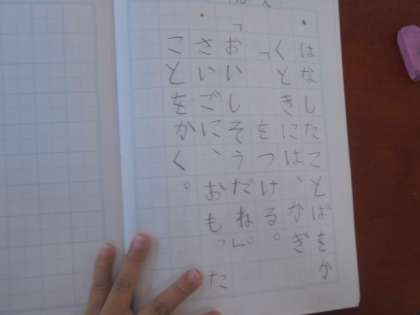 はなしたことばをか
くときには、かぎ
「　をつける。
「おいしそうだね」。
さいごに、おもった
ことをかく。